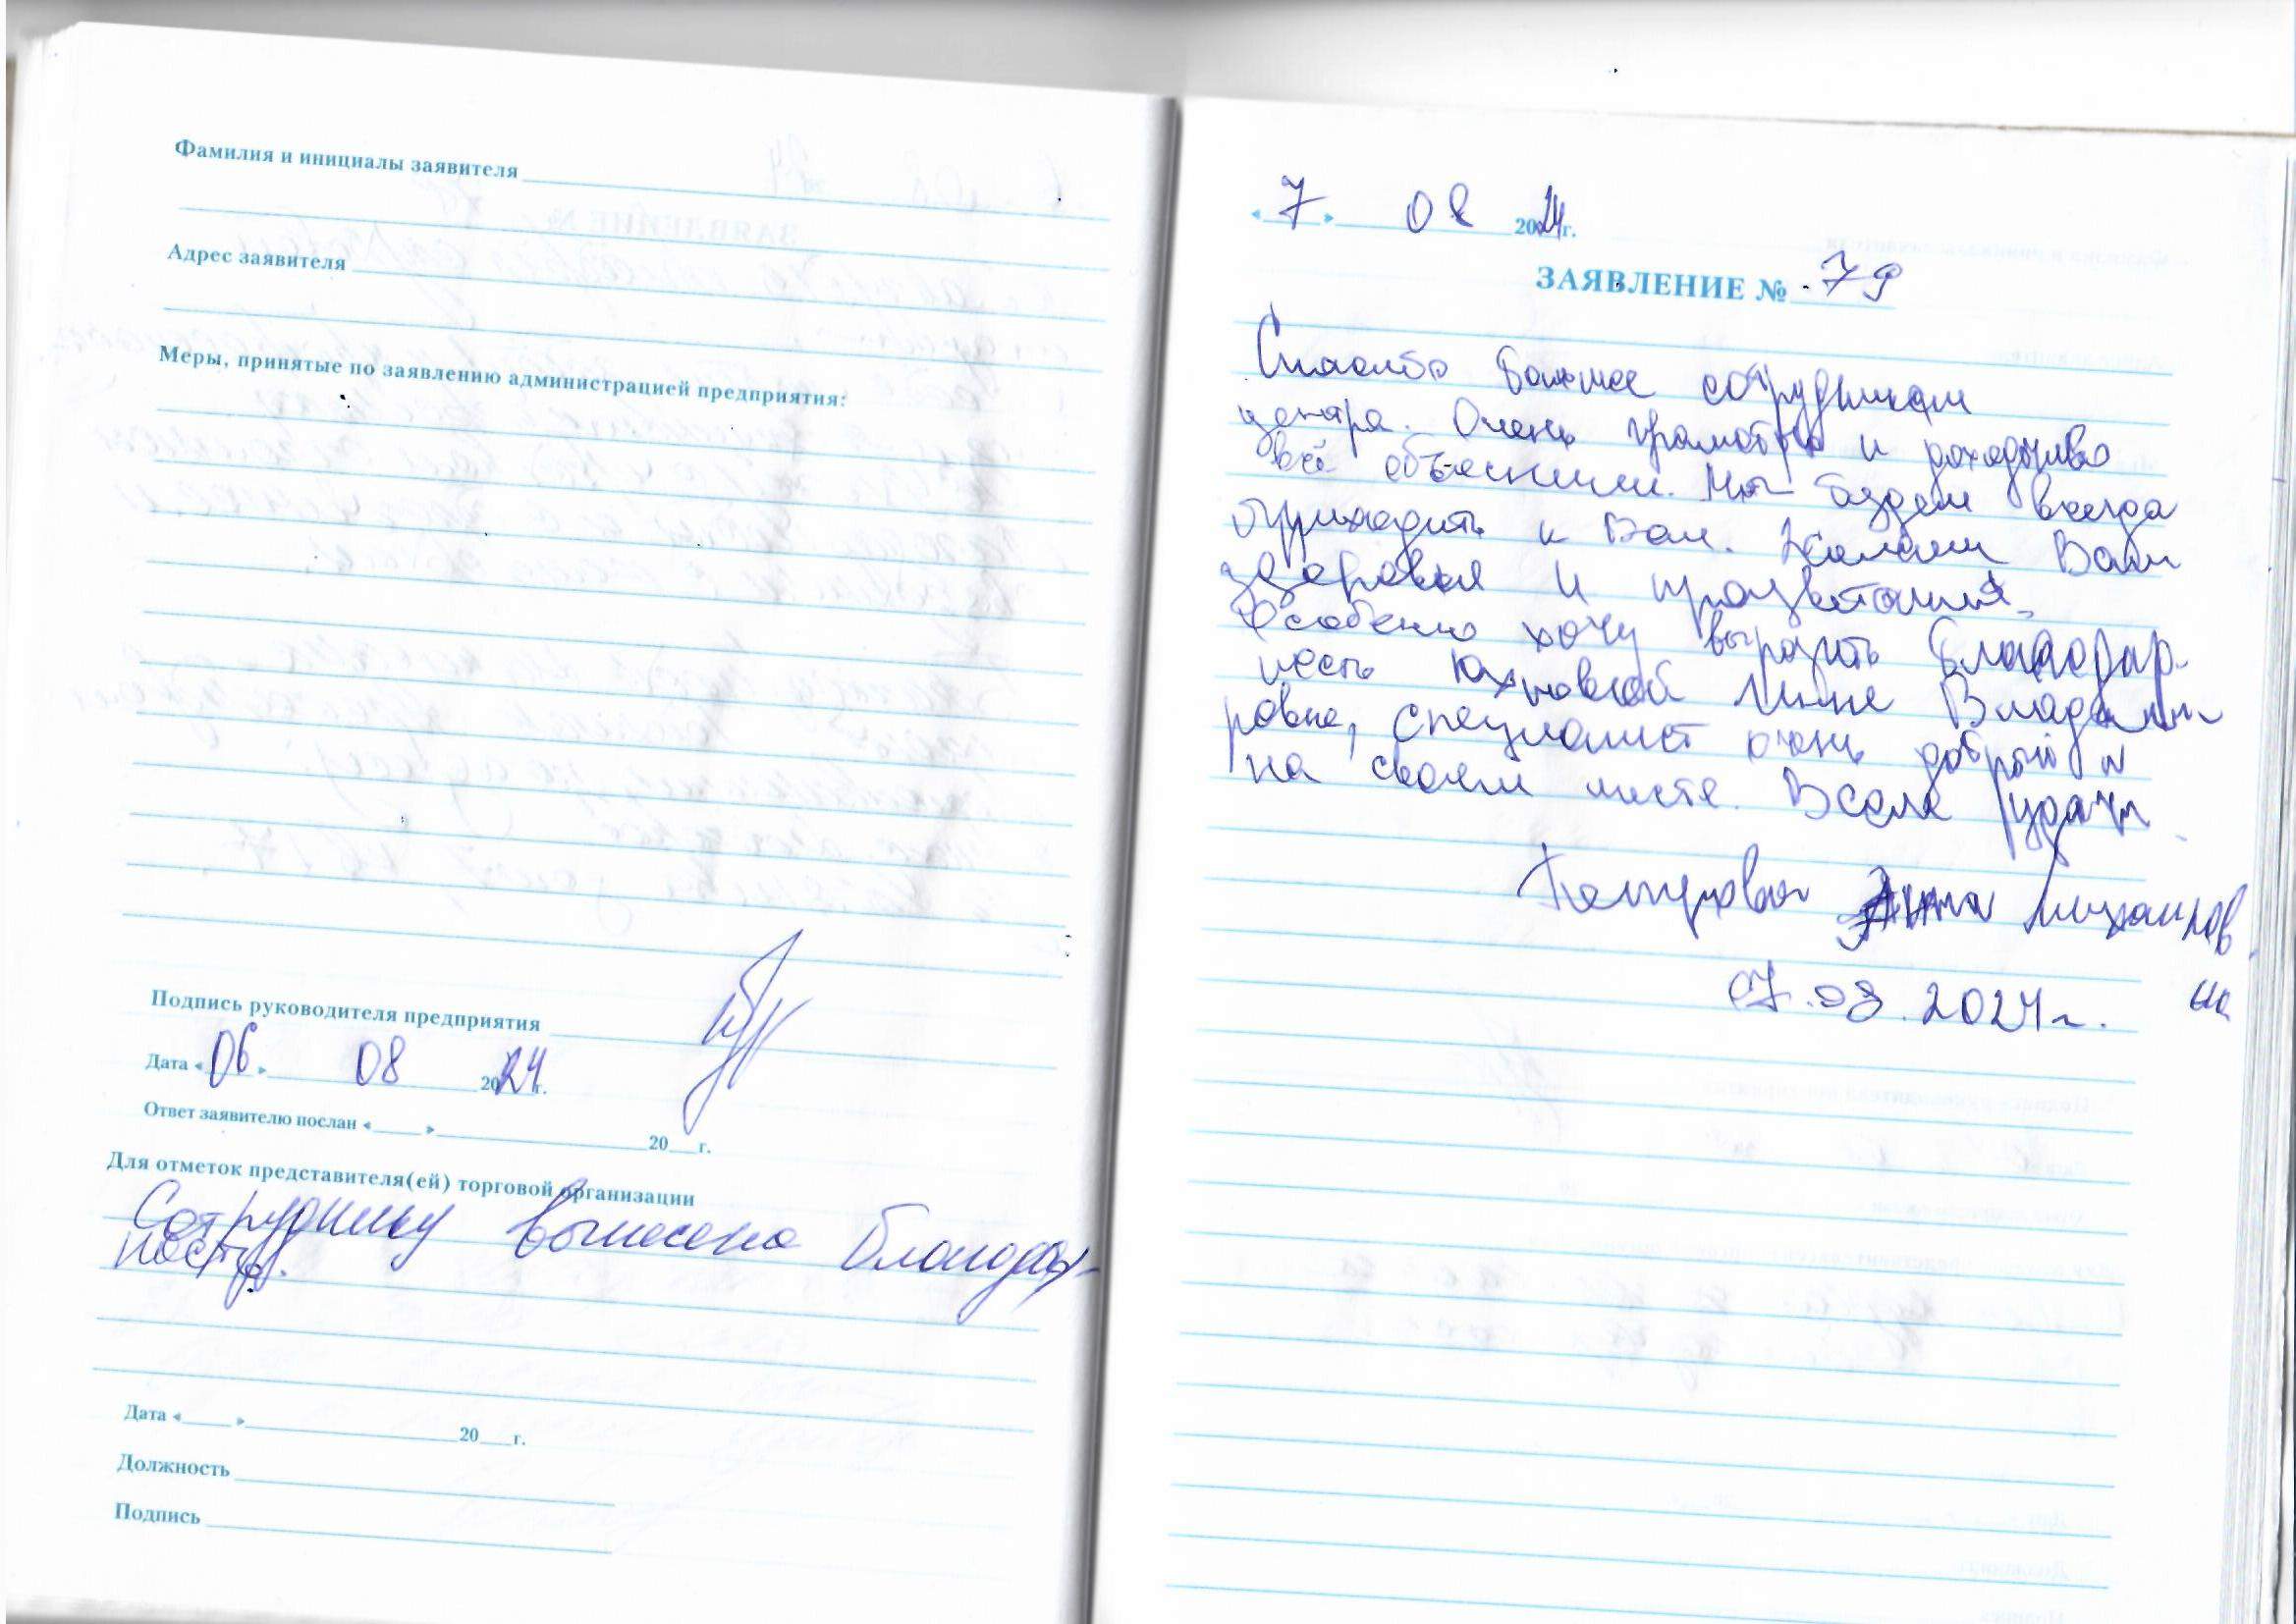 Фамилия и инициалы заявителя
Адрес заявителя
Меры, принятые по заявлению администрацией предприятия:
Подпись руководителя предприятия
Дата «06» 08 2024 г.
Ответ заявителю послан « » 20 г.
Для отметок представителя(ей) торговой организации
Сотруднику вынесена благодар-
ность.
Дата « » 20 г.
Должность
Подпись
«7» 08 2024 г.
ЗАЯВЛЕНИЕ № 79
Спасибо большое сотрудникам
центра. Очень грамотно и доходчиво
всё объяснили. Мы будем всегда
приходить к Вам. Желаем Вам
здоровья и процветания.
Особенно хочу выразить благодар-
ность Юхновской Лине Владими
ровне, специалист очень добрый и
на своем месте. Всем удачи
Анна Михайлов
на
07.08.2024 г.